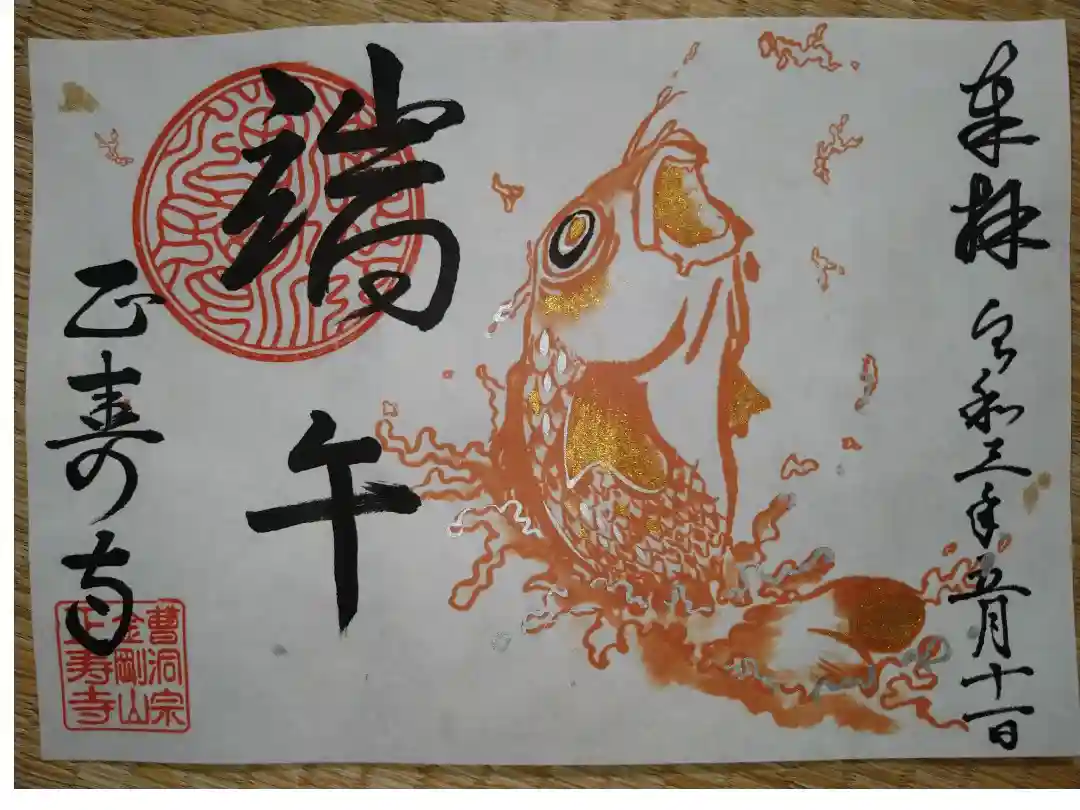 奉拝 令和三年五月十一日
端午
正寿寺
曹洞宗
金剛山
正寿寺